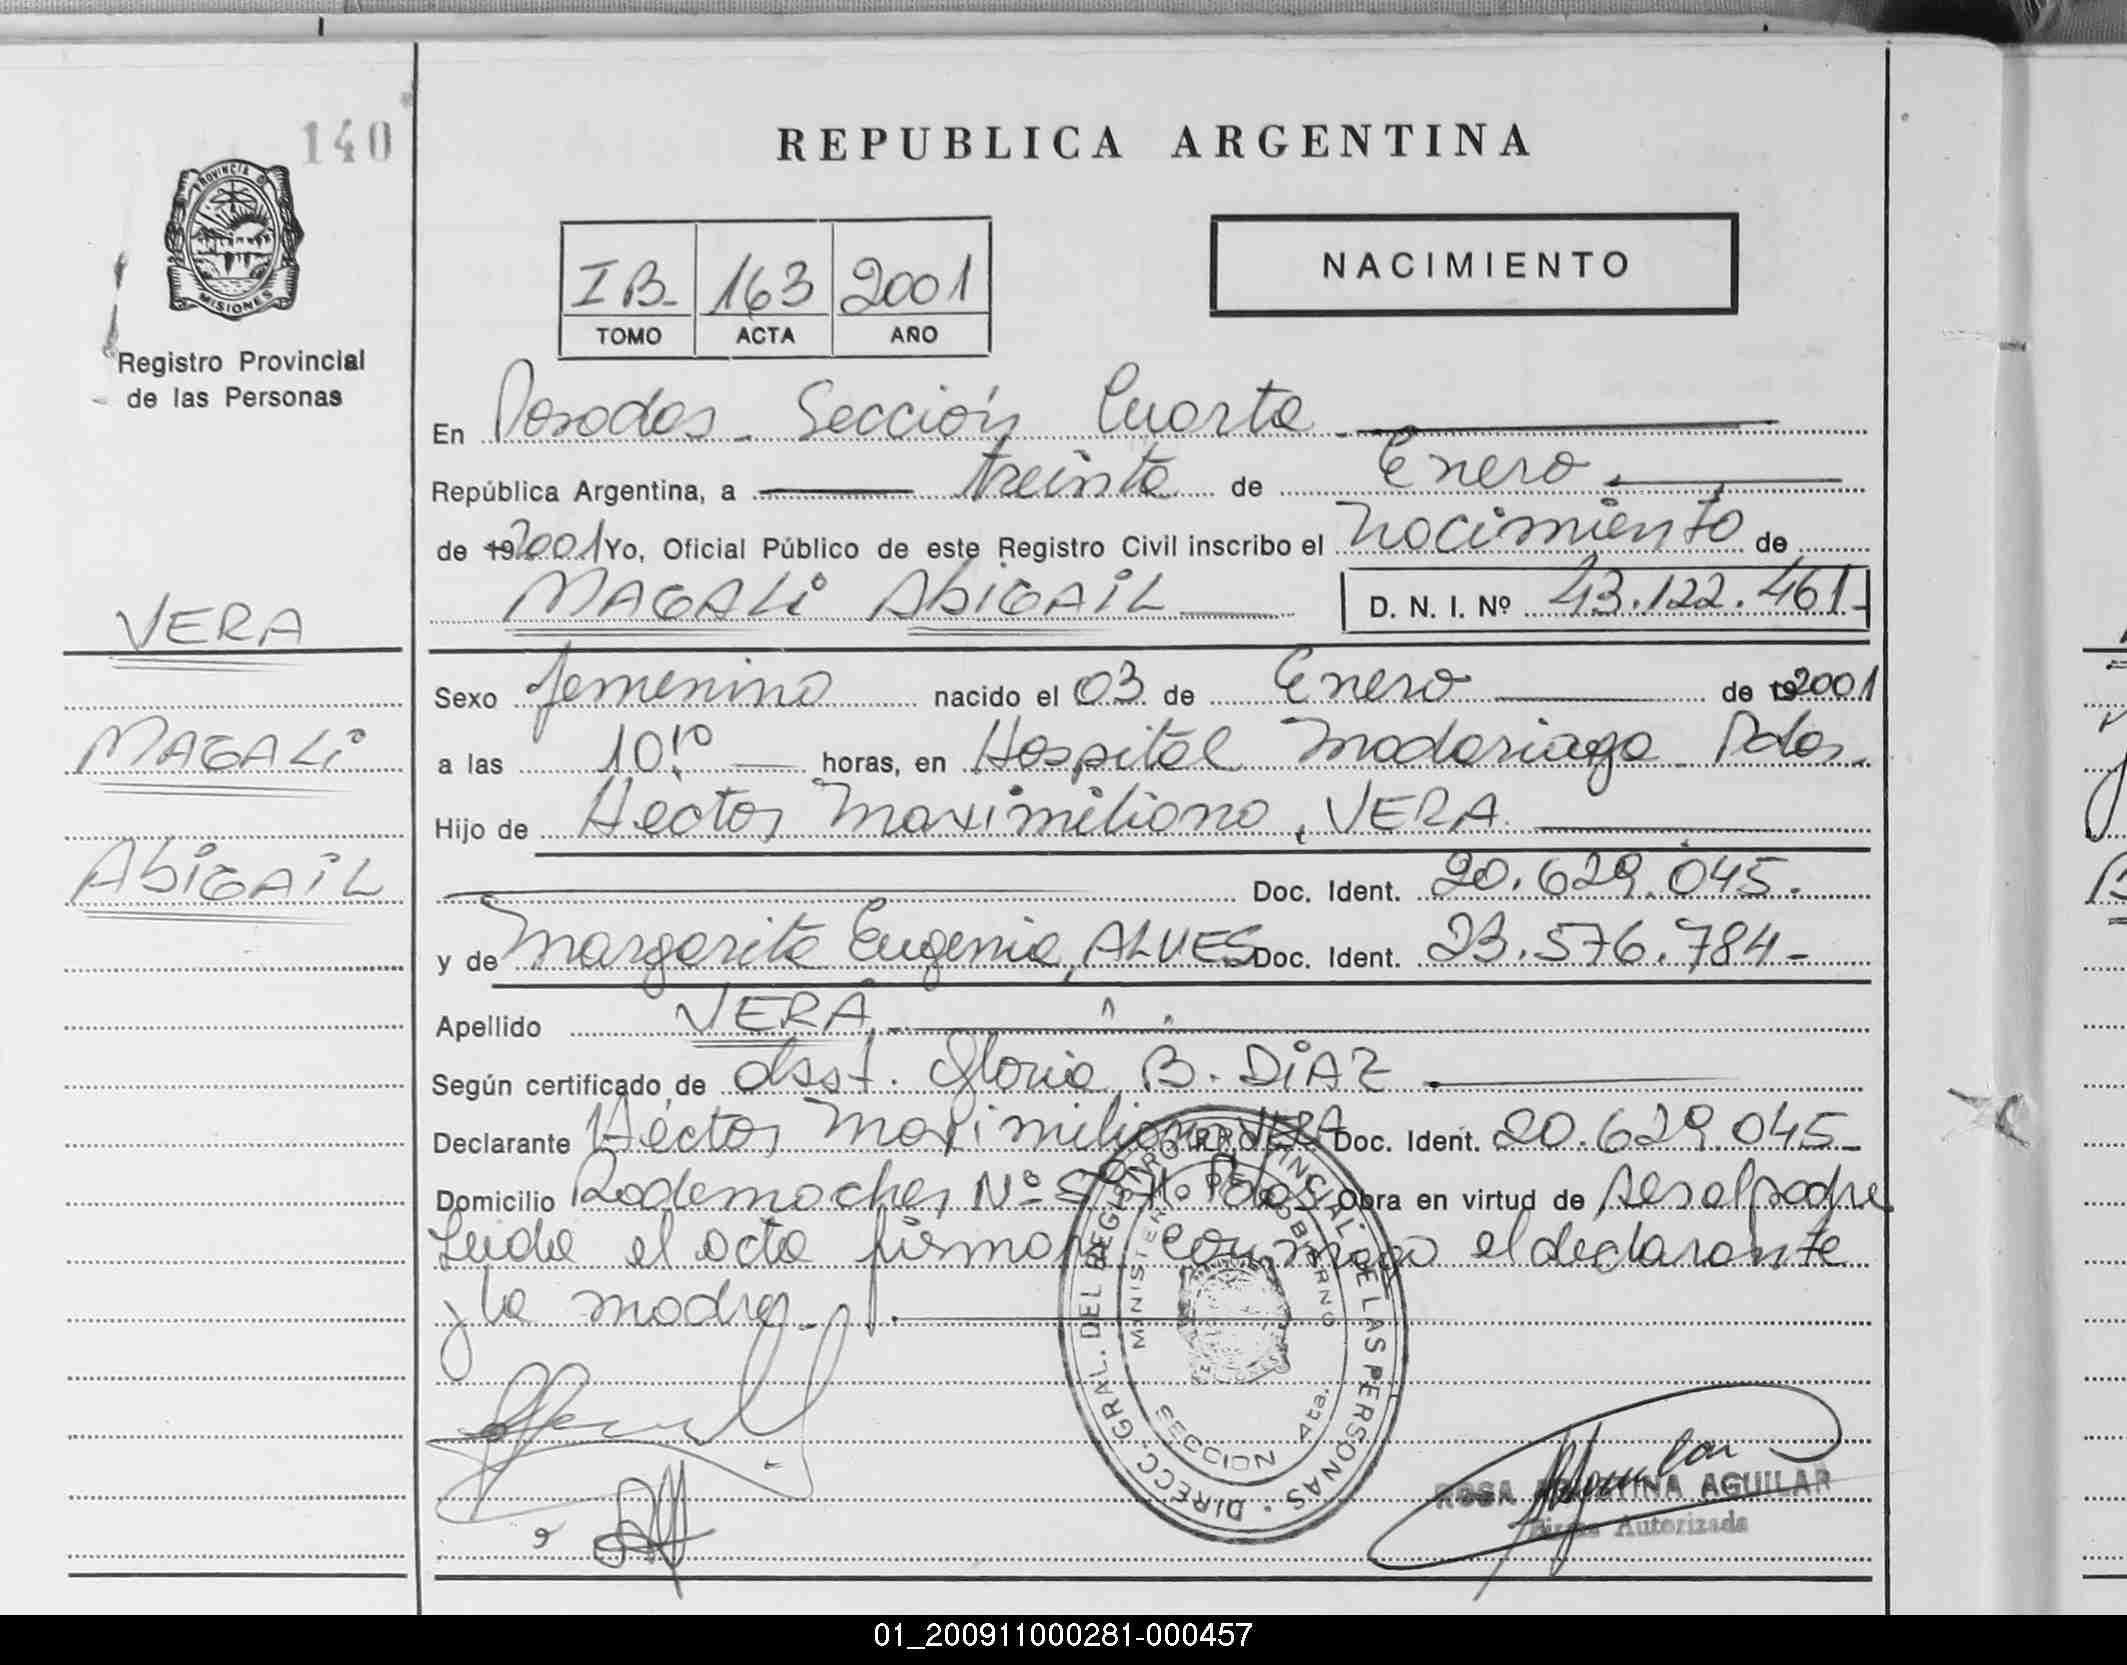 140
PROVINCIA DE
MISIONES
Registro Provincial
de las Personas
VERA
MAGALI
ABIGAIL
REPUBLICA ARGENTINA
IB- 163 2001
TOMO ACTA AÑO
NACIMIENTO
En Posadas - Sección Cuarta
República Argentina, a treinta de Enero
de 19 2001 Yo, Oficial Público de este Registro Civil inscribo el Nacimiento de
MAGALI ABIGAIL D. N. I. Nº 43.122.461-
Sexo femenino nacido el 03 de Enero de 19 2001
a las 10:10 horas, en Hospital Madariaga Pdas.
Hijo de Héctor Maximiliano, VERA
Doc. Ident. 20.629.045.
y de Margarita Eugenia, ALVES Doc. Ident. 23.576.784-
Apellido VERA
Según certificado de Asist. Gloria B. DIAZ
Declarante Héctor Maximiliano VERA Doc. Ident. 20.629.045-
Domicilio Rademacher, Nº Pdas Obra en virtud de ser el padre
Leída el acta firman conmigo el declarante
y la madre.-
DIRECC. GRAL. DEL REGISTRO PROVINCIAL DE LAS PERSONAS
MINISTERIO DE GOBIERNO
SECCION 4ta.
ROSA AGUILAR
Firma Autorizada
01_200911000281-000457